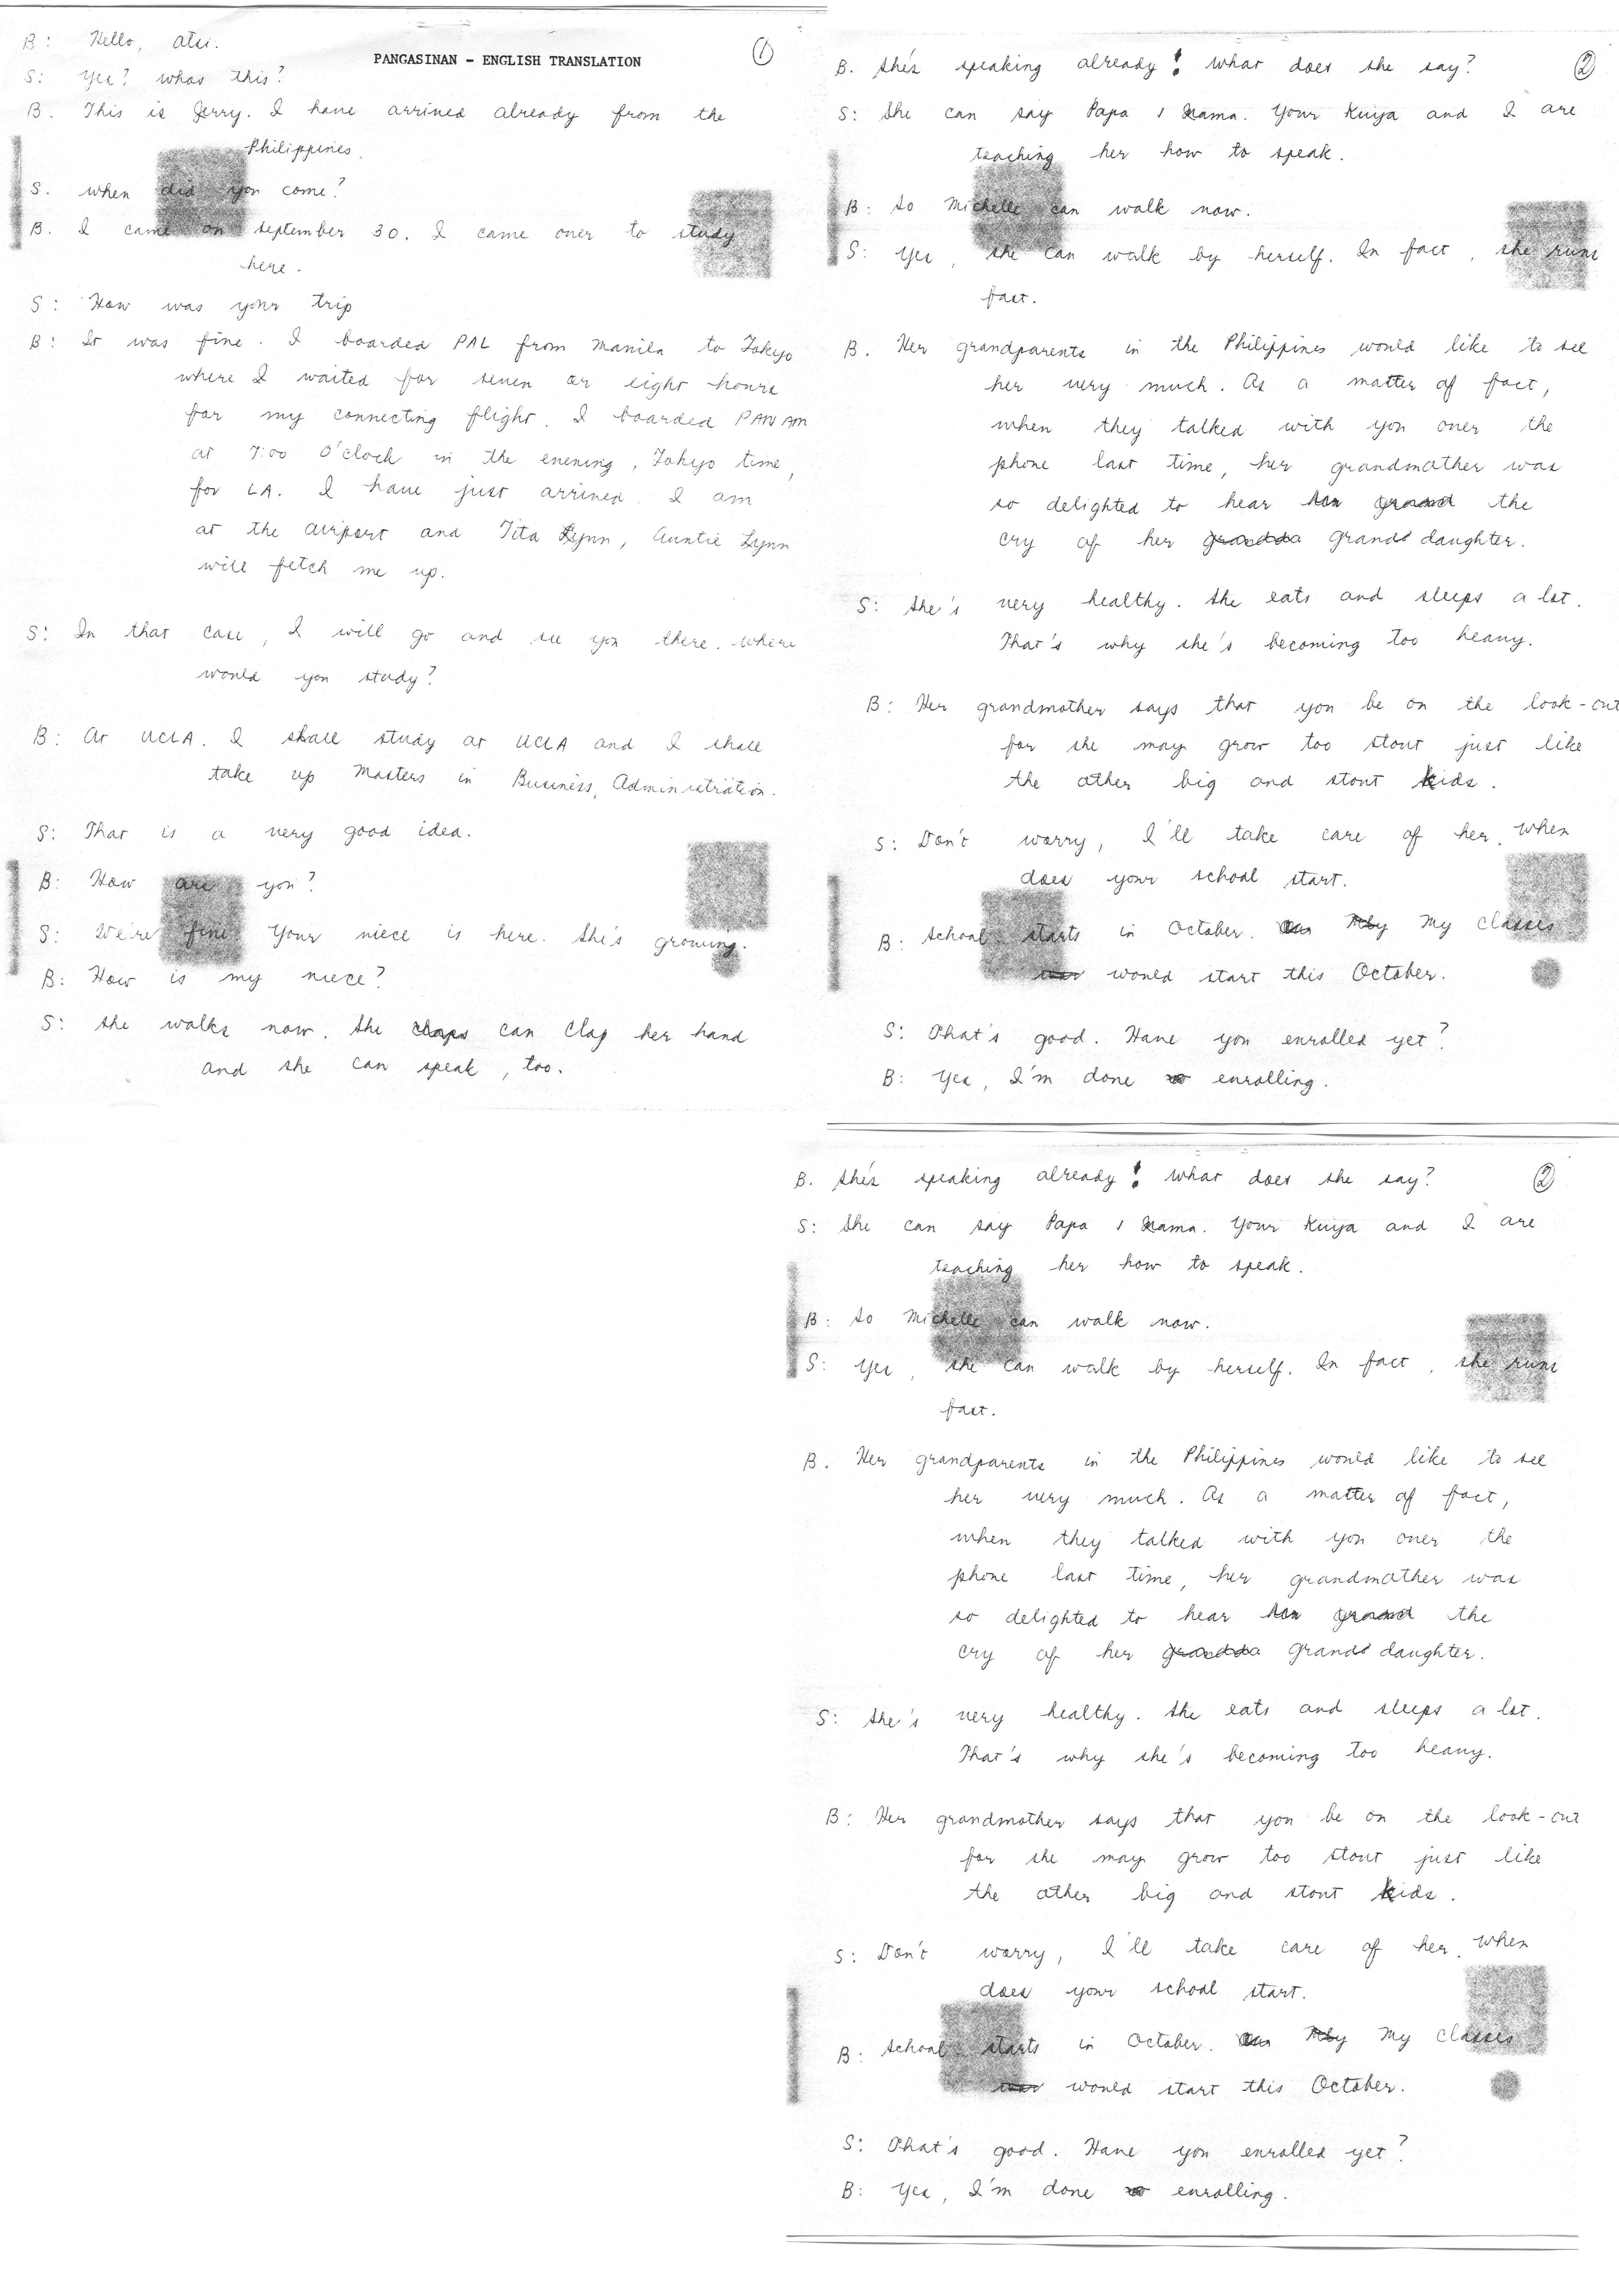 PANGASINAN - ENGLISH TRANSLATION
1
B: Hello, atsi.
S: Yes? whos this?
B. This is Jerry. I have arrived already from the
Philippines.
S. when did you come?
B. I came on September 30. I came over to study
here.
S: How was your trip
B: It was fine. I boarded PAL from Manila to Tokyo
where I waited for seven or eight hours
for my connecting flight. I boarded PAN AM
at 7:00 O'clock in the evening, Tokyo time,
for LA. I have just arrived. I am
at the airport and Tita Lynn, Auntie Lynn
will fetch me up.
S: In that case, I will go and see you there. Where
would you study?
B: At UCLA. I shall study at UCLA and I shall
take up Masters in Business Administration.
S: That is a very good idea.
B: How are you?
S: We're fine Your niece is here. She's growing.
B: How is my niece?
S: She walks now. She claps can clap her hand
and she can speak, too.
2
B. She's speaking already! What does she say?
S: She can say Papa, Mama. Your Kuya and I are
teaching her how to speak.
B: So Michelle can walk now.
S: Yes, she can walk by herself. In fact, she runs
fast.
B. Her grandparents in the Philippines would like to see
her very much. As a matter of fact,
when they talked with you over the
phone last time, her grandmother was
so delighted to hear the
cry of her grandda grand daughter.
S: She's very healthy. She eats and sleeps a lot.
That's why she's becoming too heavy.
B: Her grandmother says that you be on the look-out
for she may grow too stout just like
the other big and stout kids.
S: Don't worry, I'll take care of her. When
does your school start.
B: School starts in October. My classes
would start this October.
S: That's good. Have you enrolled yet?
B: Yes, I'm done enrolling.
2
B. She's speaking already! What does she say?
S: She can say Papa, Mama. Your Kuya and I are
teaching her how to speak.
B: So Michelle can walk now.
S: Yes, she can walk by herself. In fact, she runs
fast.
B. Her grandparents in the Philippines would like to see
her very much. As a matter of fact,
when they talked with you over the
phone last time, her grandmother was
so delighted to hear the
cry of her grandda grand daughter.
S: She's very healthy. She eats and sleeps a lot.
That's why she's becoming too heavy.
B: Her grandmother says that you be on the look-out
for she may grow too stout just like
the other big and stout kids.
S: Don't worry, I'll take care of her. When
does your school start.
B: School starts in October. My classes
would start this October.
S: That's good. Have you enrolled yet?
B: Yes, I'm done enrolling.